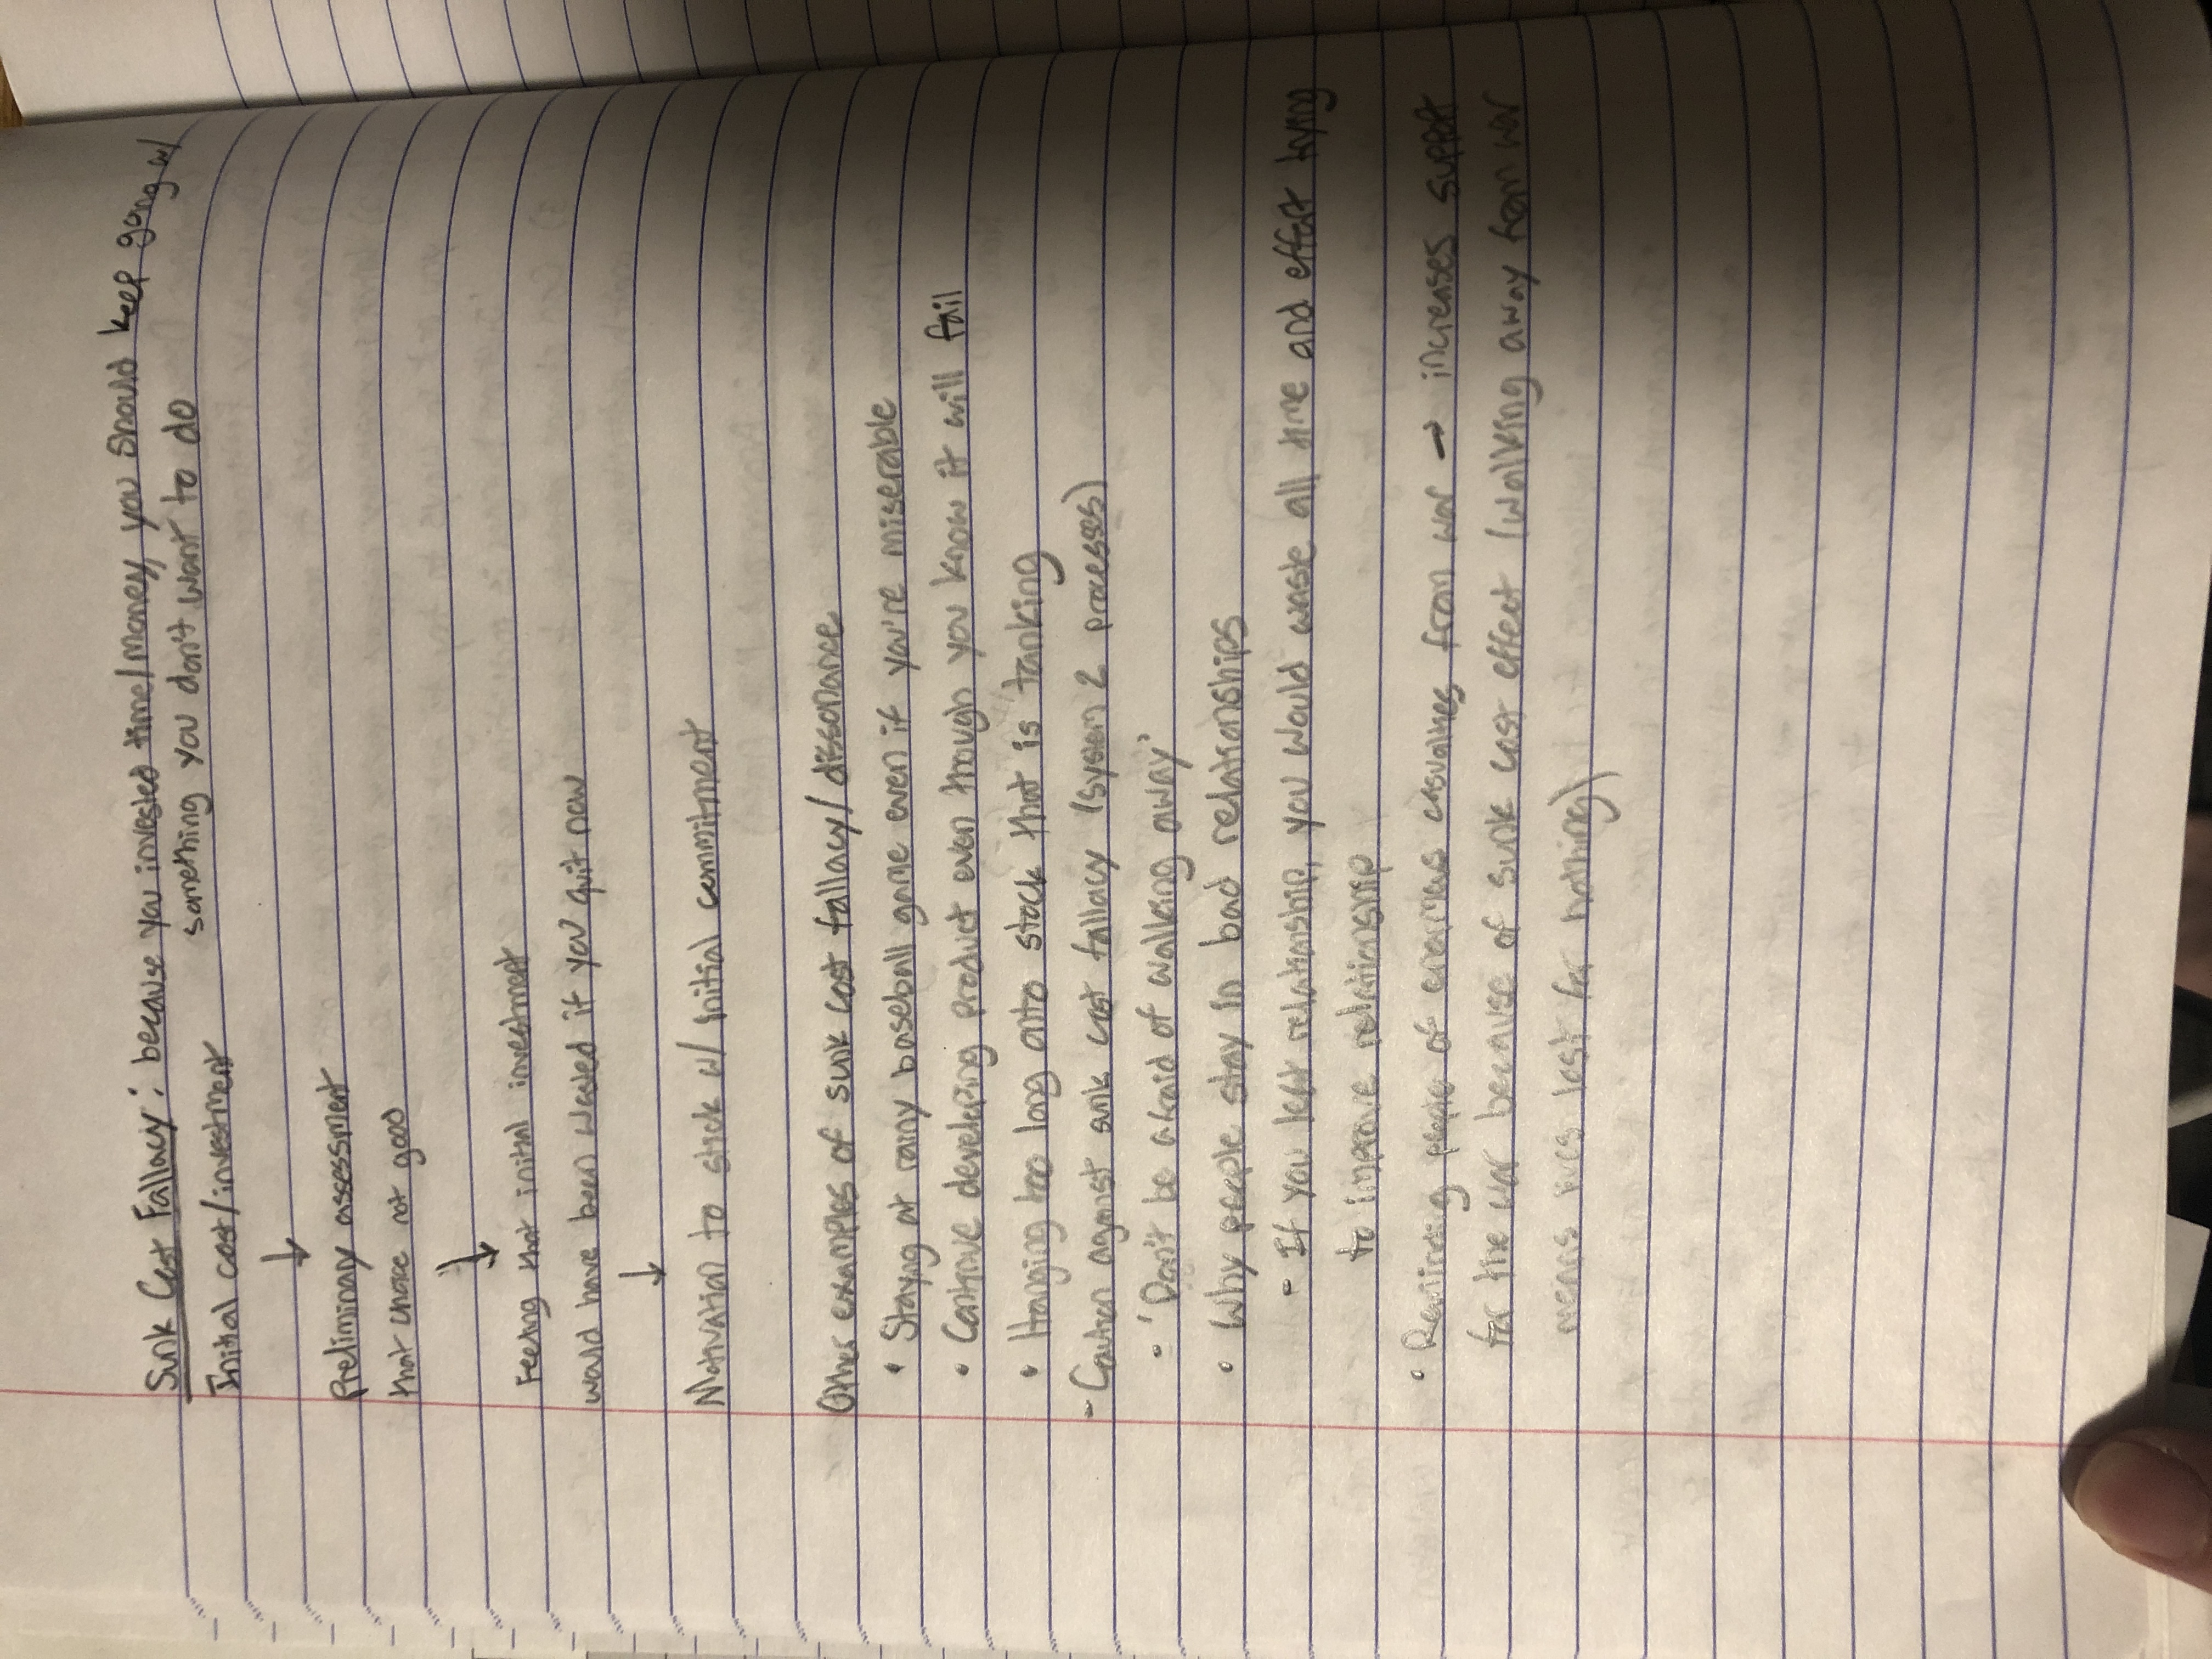 Sunk Cost Fallacy: because you invested time/money, you should keep going w/
something you don't want to do
Initial cost/investment
↓
Preliminary assessment
that choice not good
↓
Feeling that initial investment
would have been wasted if you quit now
↓
Motivation to stick w/ initial commitment
Other examples of sunk cost fallacy/dissonance
• Staying at rainy baseball game even if you're miserable
• Continue developing product even though you know it will fail
• Hanging too long onto stock that is tanking
- Caution against sunk cost fallacy (System 2 processes)
• 'Don't be afraid of walking away'
• Why people stay in bad relationships
- If you left relationship, you would waste all time and effort trying
to improve relationship
• Reminding people of enormous casualties from war → increases support
for the war because of sunk cost effect (walking away from war
means lives lost for nothing)